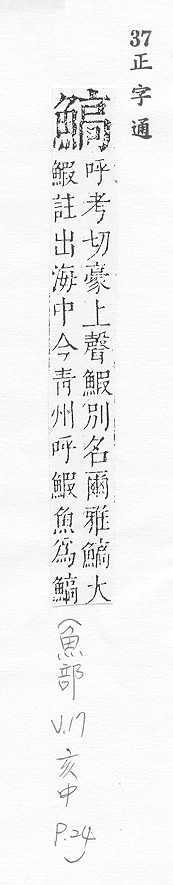 37正字通
鰝
呼考切豪上聲鰕別名爾雅鰝大
鰕註出海中今青州呼鰕魚為鰝
(魚部 V.17 亥中 P.24)